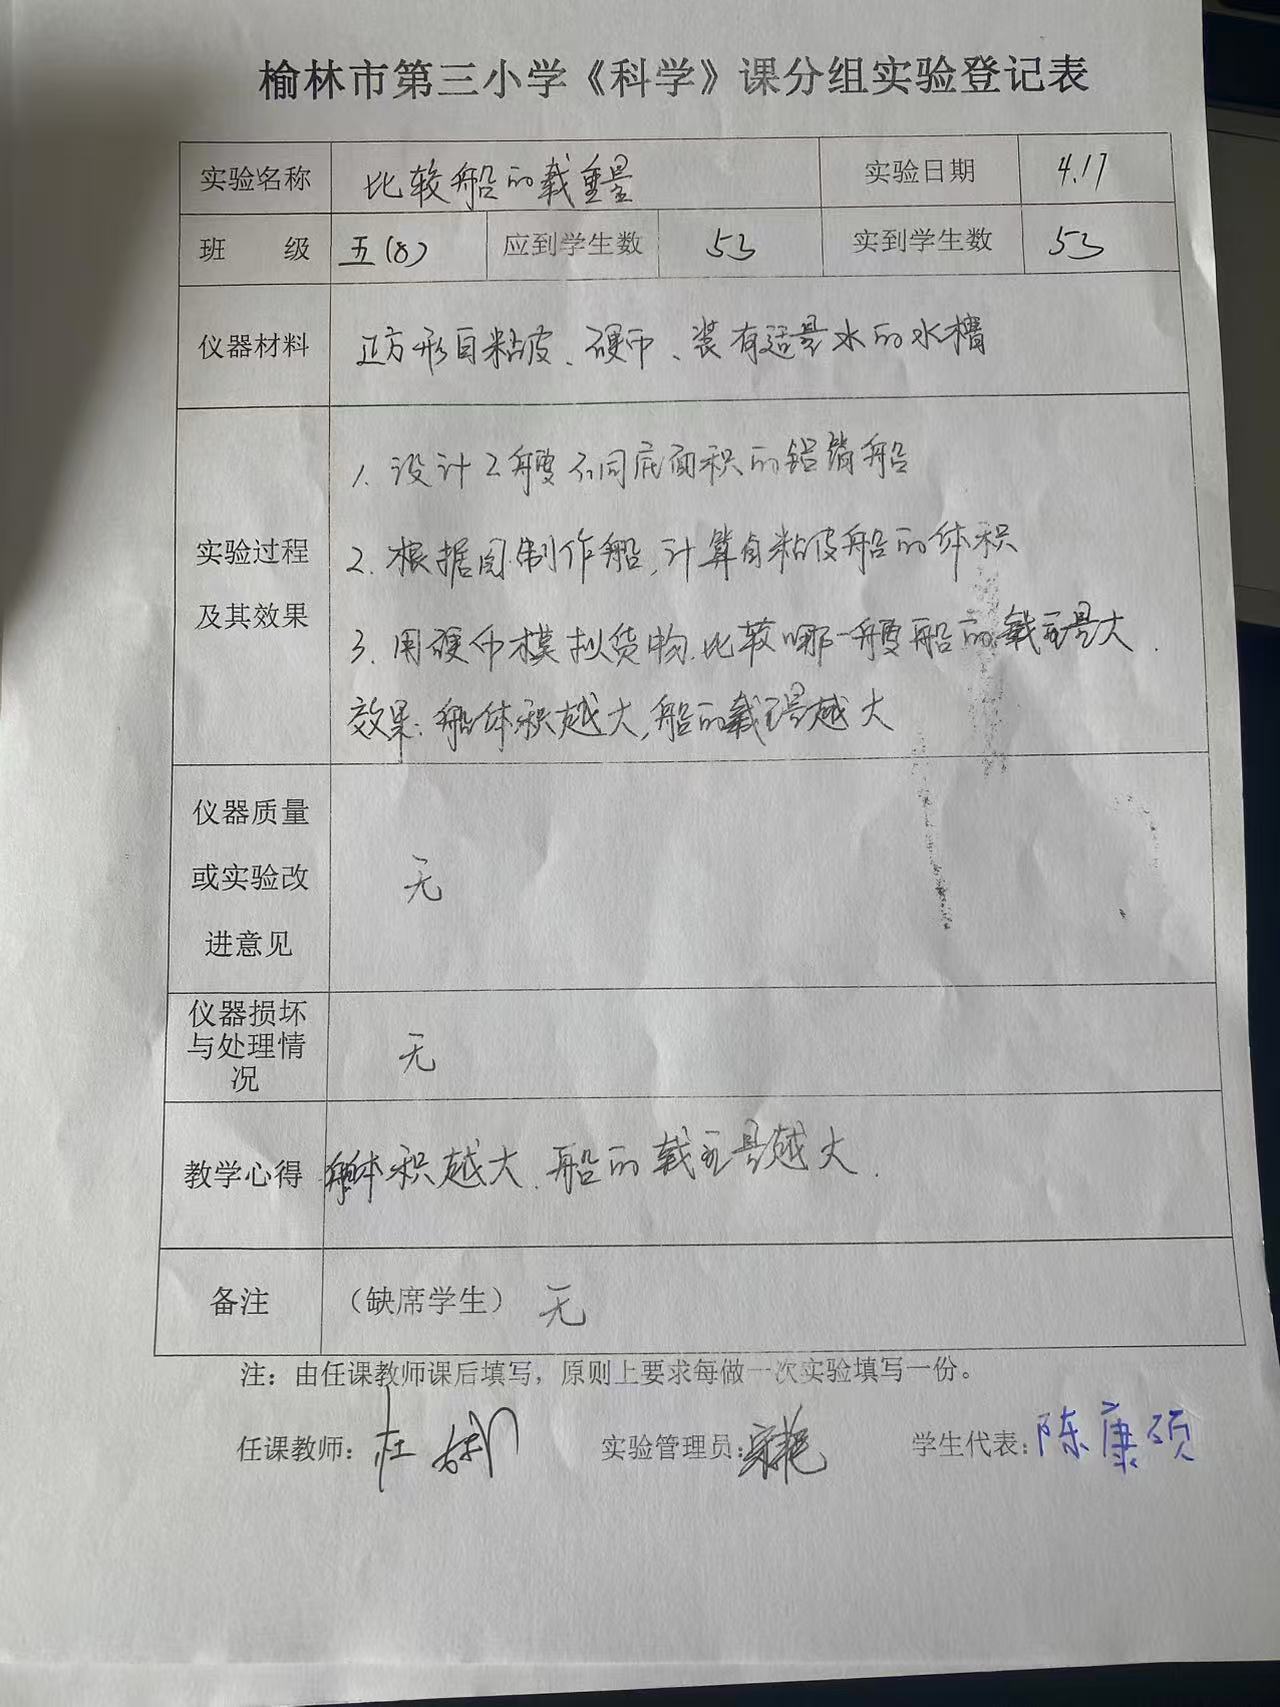 榆林市第三小学《科学》课分组实验登记表
实验名称 比较船的载重量 实验日期 4.17
班 级 五(8) 应到学生数 53 实到学生数 53
仪器材料 正方形自粘皮、硬币、装有适量水的水槽
实验过程
及其效果
1. 设计2艘不同底面积的铝箔船
2. 根据图制作船,计算自粘皮船的体积
3. 用硬币模拟货物.比较哪一艘船的载重量大.
效果:船体积越大,船的载重量越大
仪器质量
或实验改
进意见
无
仪器损坏
与处理情
况
无
教学心得 船体积越大.船的载重量越大.
备注 (缺席学生) 无
注:由任课教师课后填写,原则上要求每做一次实验填写一份。
任课教师: 杜 实验管理员: 学生代表:陈康硕